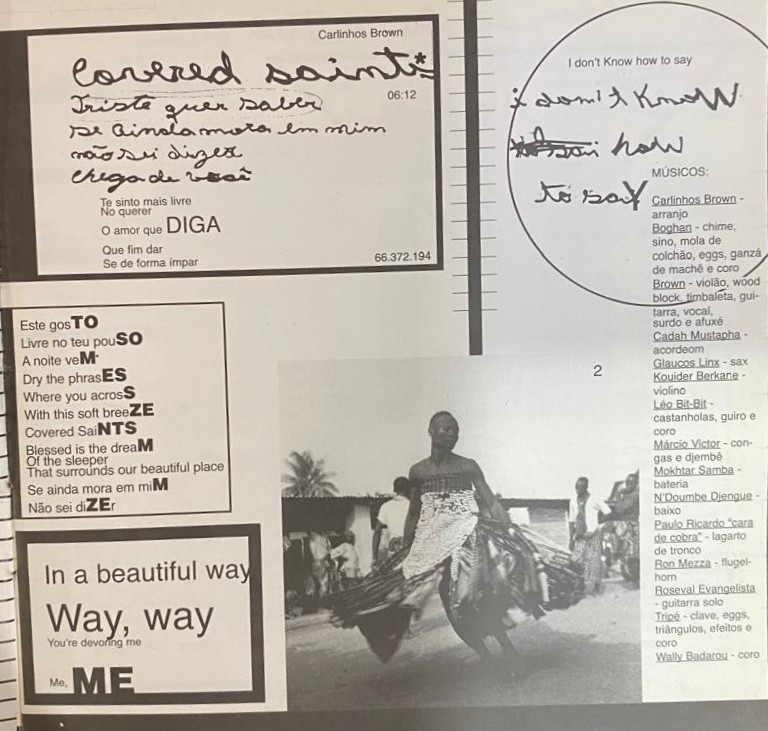 Carlinhos Brown
Covered saints*
06:12
Triste quer saber
se ainda mora em mim
não sei dizer
chega de você
Te sinto mais livre
No querer
O amor que DIGA
Que fim dar
Se de forma ímpar
66.372.194
Este gosTO
Livre no teu pouSO
A noite veM
Dry the phrasES
Where you acrosS
With this soft breeZE
Covered SaiNTS
Blessed is the dreaM
Of the sleeper
That surrounds our beautiful place
Se ainda mora em miM
Não sei diZEr
In a beautiful way
Way, way
You're devoring me
Me, ME
I don't Know how to say
i don't Know
how
to say
MÚSICOS:
Carlinhos Brown -
arranjo
Boghan - chime,
sino, mola de
colchão, eggs, ganzá
de machê e coro
Brown - violão, wood
block, timbaleta, gui-
tarra, vocal,
surdo e afuxé
Cadah Mustapha -
acordeom
Glaucos Linx - sax
Kouider Berkane -
violino
Léo Bit-Bit -
castanholas, guiro e
coro
Márcio Victor - con-
gas e djembê
Mokhtar Samba -
bateria
N'Doumbe Djengue -
baixo
Paulo Ricardo "cara
de cobra" - lagarto
de tronco
Ron Mezza - flugel-
horn
Roseval Evangelista
- guitarra solo
Tripé - clave, eggs,
triângulos, efeitos e
coro
Wally Badarou - coro
2